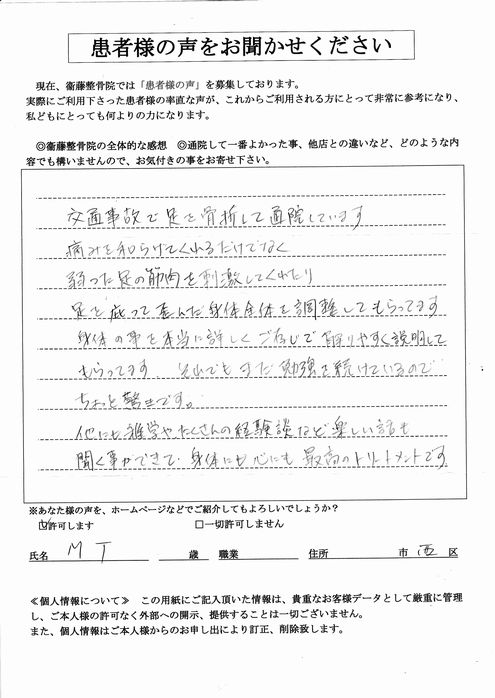 患者様の声をお聞かせください
現在、衞藤整骨院では「患者様の声」を募集しております。
実際にご利用下さった患者様の率直な声が、これからご利用される方にとって非常に参考になり、
私どもにとっても何よりの力になります。
◎衞藤整骨院の全体的な感想　◎通院して一番よかった事、他店との違いなど、どのような内
容でも構いませんので、お気付きの事をお寄せ下さい。
交通事故で足を骨折して通院しています
痛みを和らげてくれるだけでなく
弱った足の筋肉を刺激してくれたり
足を庇って歪んだ身体全体を調整してもらってます
身体の事を本当に詳しくご存じで解りやすく説明して
もらってます。それでもまだ勉強を続けているので
ちょっと驚きです。
他にも雑学やたくさんの経験談など楽しい話も
聞く事ができて、身体にも心にも最高のトリートメントです
※あなた様の声を、ホームページなどでご紹介してもよろしいでしょうか？
☑許可します　□一切許可しません
氏名 M T 歳 職業 住所 市 西 区
≪個人情報について≫　この用紙にご記入頂いた情報は、貴重なお客様データとして厳重に管理
し、ご本人様の許可なく外部への開示、提供することは一切ございません。
また、個人情報はご本人様からのお申し出により訂正、削除致します。